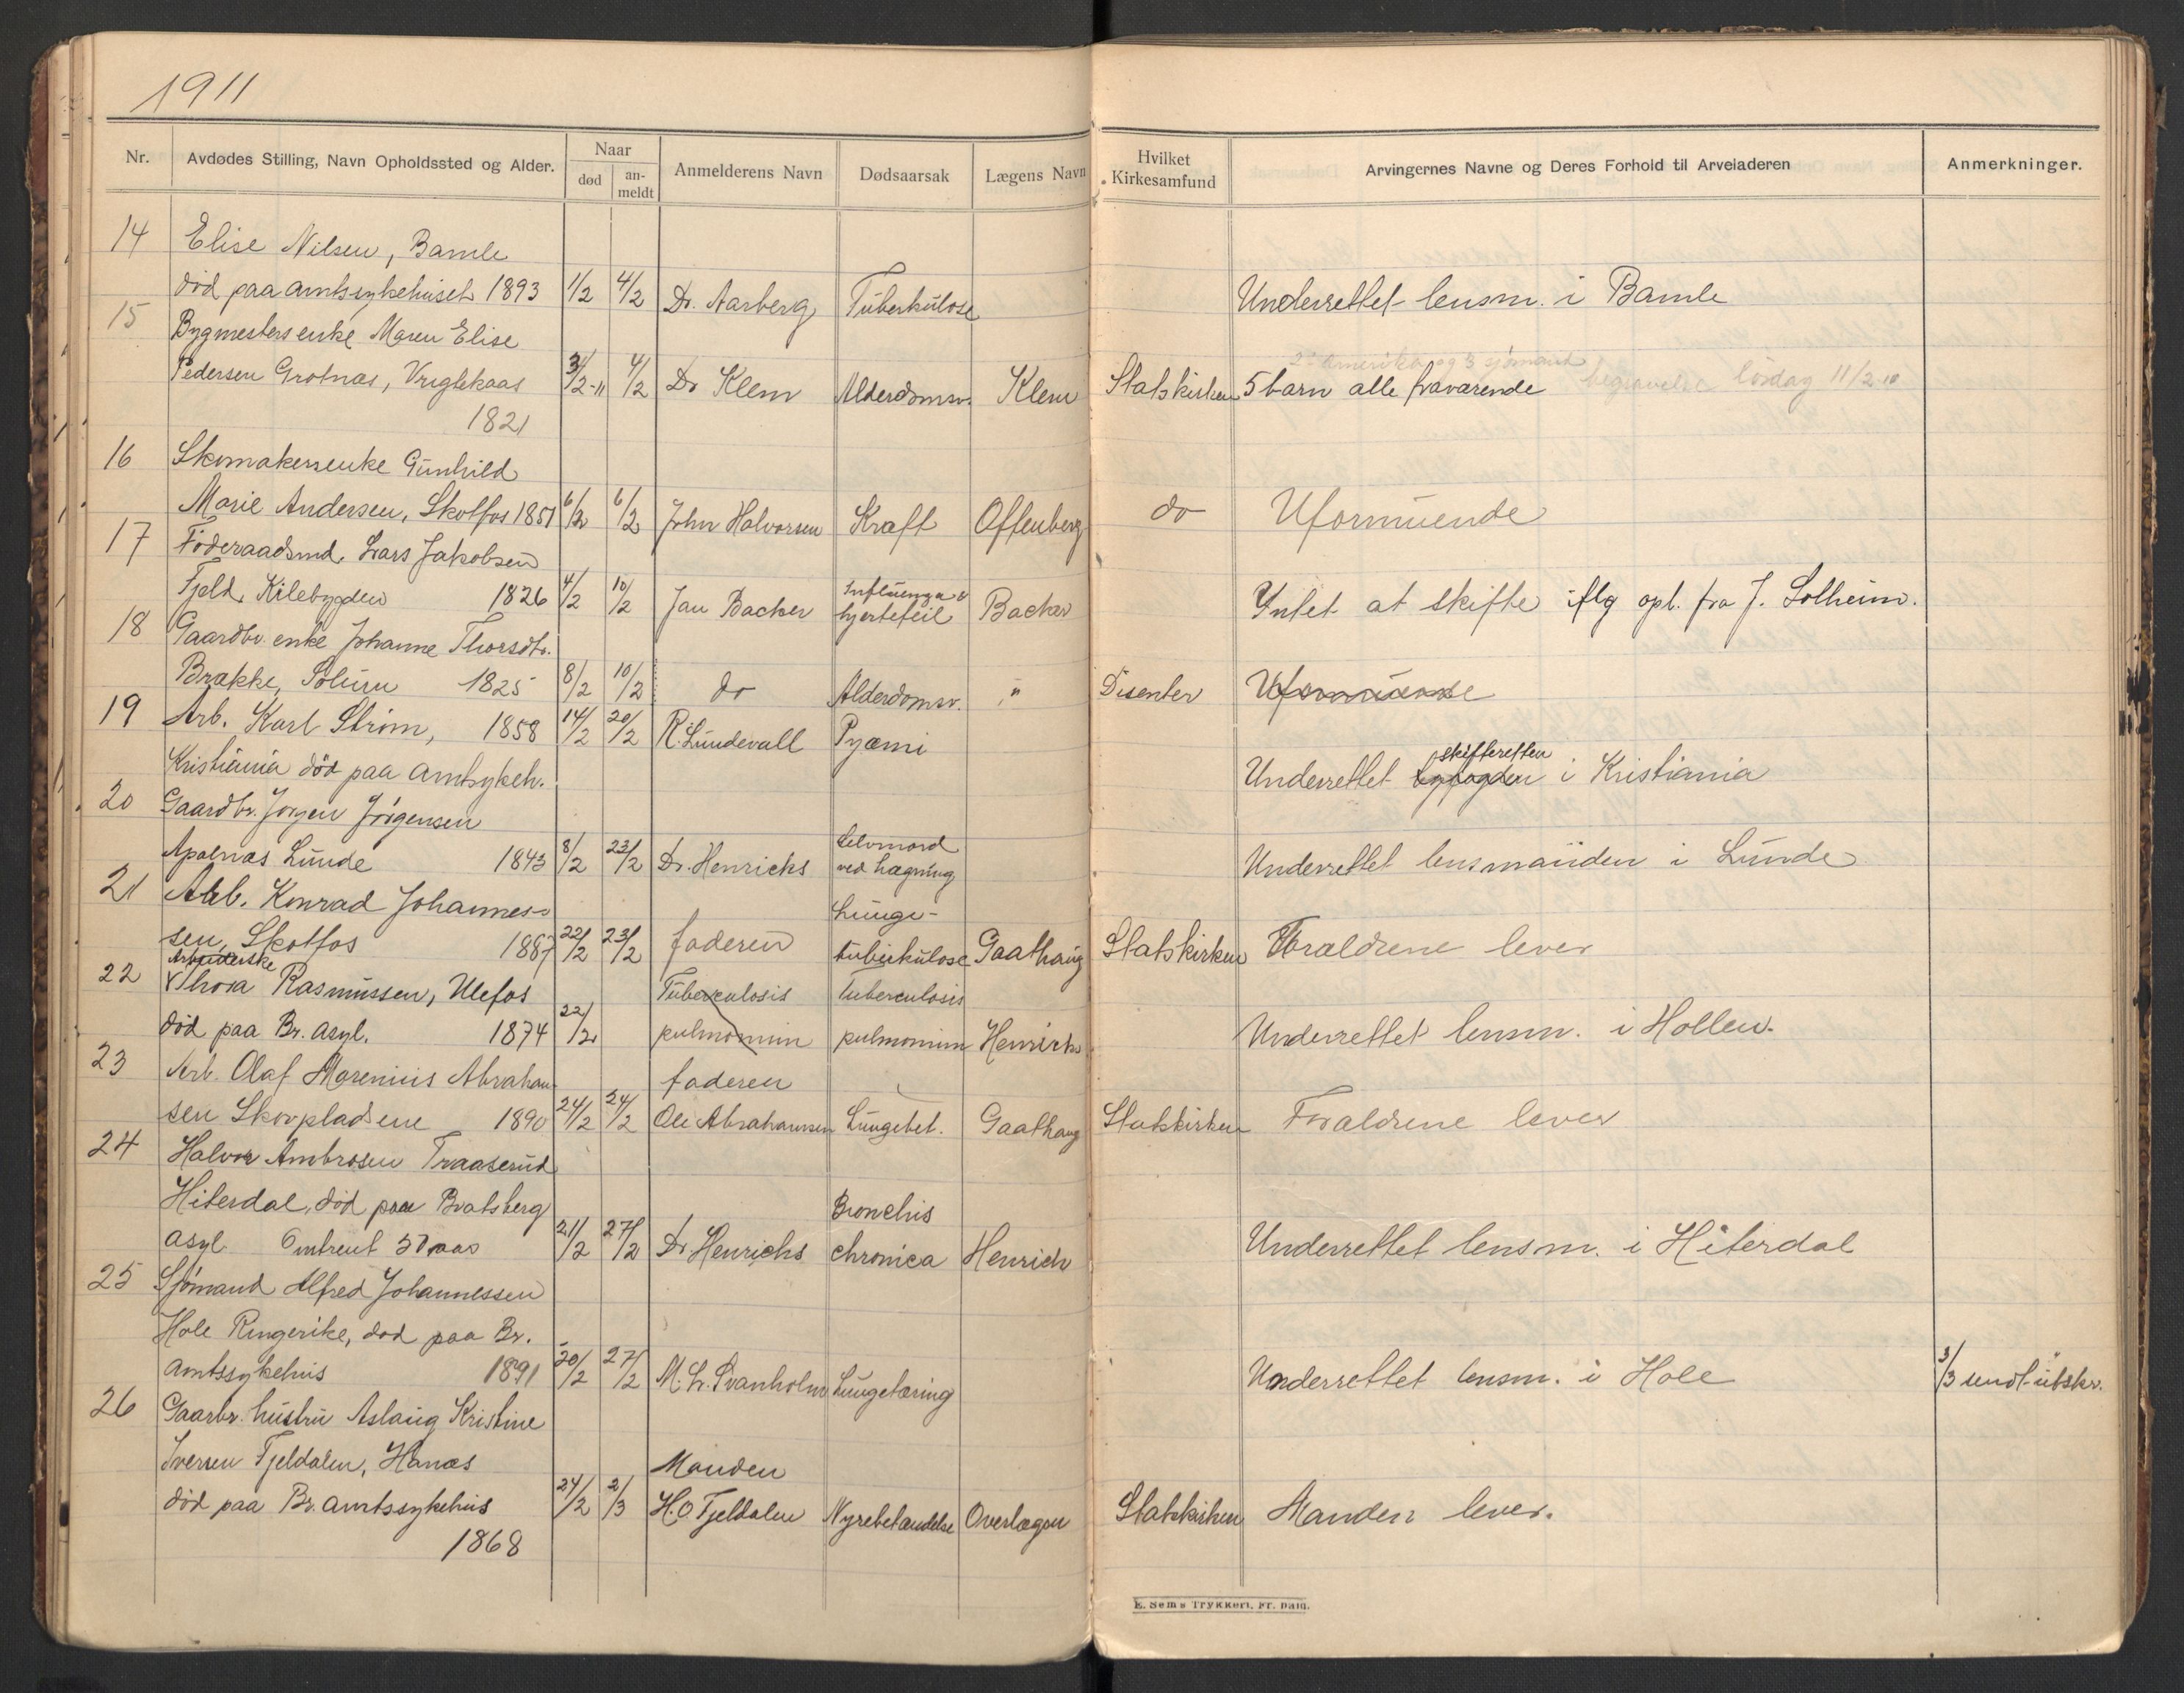 1911
Nr. Avdødes Stilling, Navn Opholdssted og Alder. Naar død an-meldt Anmelderens Navn Dødsaarsak Lægens Navn Hvilket Kirkesamfund Arvingernes Navne og Deres Forhold til Arveladeren Anmerkninger.
14 Elise Nilsen, Bamle
död paa amtssykehuset 1893 1/2 4/2 Dr. Aarberg Tuberkulose Underrettet lensm. i Bamle
15 Bygmestersenke Maren Elise
2 i Amerika og 3 sjömænd
Pedersen Grotnæs, 3/2-11 4/2 Dr Klem Alderdomsv. Klem Statskirken 5 barn alle fraværende begravelse lördag 11/2
1821
16 Skomakerenke Gunhild
Marie Andersen, Skotfos 1851 6/2 6/2 John Halvorsen Kræft Offenberg do Uformuende
17 Föderaadsmd. Lars Jakobsen
Fjeld, Kilebygden 1826 4/2 10/2 Jan Backer Influenza & hjertefeil Backer Intet at skifte iflg opl. fra J. Solheim.
18 Gaardbr. enke Johanne Thorsdtr.
Brække, Solum 1825 8/2 10/2 do Alderdomsv. " Disenter Uformuende
19 Arb. Karl Ström, 1858 14/2 20/2 R. Lundevall Pyæmi
skifteretten
Kristiania död paa amtsykeh. Underrettet byfogden i Kristiania
20 Gaardbr. Jörgen Jörgensen
Selvmord
Apalnæs Lunde 1843 8/2 23/2 Dr. Henrichs ved hægning Underrettet lensmanden i Lunde
21 Arb. Konrad Johannes-
Lunge-
sen, Skotfos 1887 22/2 23/2 faderen tuberkulose Gaathaug Statskirken Forældrene lever
Arbeiderske
22 Thora Rasmussen, Ulefos Tuberculosis tuberculosis
död paa Br. asyl. 1874 22/2 pulmonum pulmonum Henrichs Underrettet lensm. i Hollen.
23 Arb. Olaf Marenius Abraham- faderen
sen Skovpladsene 1890 24/2 24/2 Ole Abrahamsen Lungebet. Gaathaug Statskirken Forældrene lever
24 Halvor Ambrosen Traaserud
Hiterdal, död paa Bratsberg Bronchis
asyl. Omtrent 50 aar 21/2 27/2 Dr Henrichs chronica Henrich Underrettet lensm. i Hiterdal
25 Sjömand Alfred Johannessen
Hole Ringerike, död paa Br.
amtssykehus 1891 20/2 27/2 M. L. Svanholm Lungetæring Underrettet lensm. i Hole 3/3 sendt utskr.
26 Gaarbr. hustru Aslaug Kristine
Iversen Fjeldalen, Hanæs Manden
död paa Br. amtssykehus 24/2 2/3 H. O Fjeldalen Nyrebetændelse Overlægen Statskirken Manden lever.
1868
E. Sem's Trykkeri, Fr. hald.